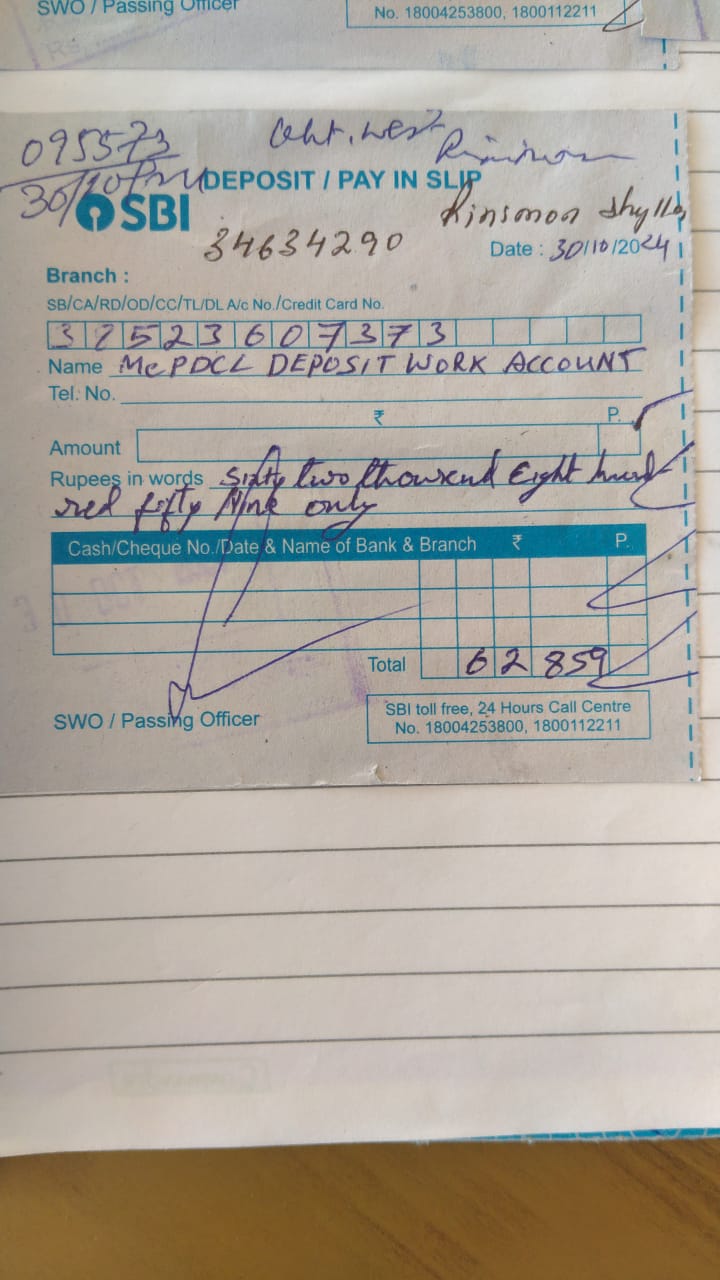 SWO / Passing Officer
No. 18004253800, 1800112211
095573
30/10
DEPOSIT / PAY IN SLIP
SBI
Rinsmon Shylla
34634290
Date : 30/10/2024
Branch :
SB/CA/RD/OD/CC/TL/DL A/c No./Credit Card No.
37523607373
Name MePDCL DEPOSIT WORK ACCOUNT
Tel. No.
₹ P.
Amount
Rupees in words Sixty two thousand Eight hund
red fifty Nine only
Cash/Cheque No./Date & Name of Bank & Branch ₹ P.
Total 62 859
SWO / Passing Officer
SBI toll free, 24 Hours Call Centre
No. 18004253800, 1800112211